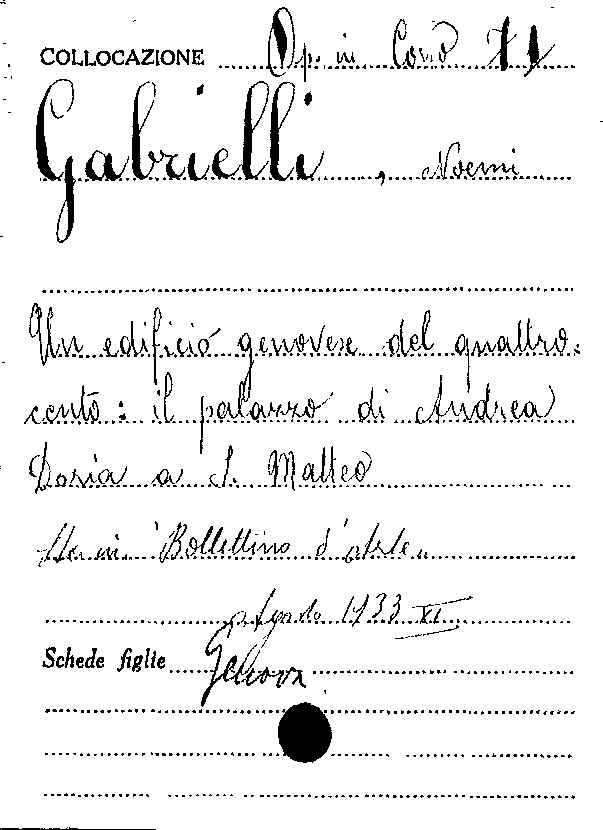 COLLOCAZIONE Op. in Cons 71
Gabrielli, Noemi
Un edificio genovese del quattro:
cento: il palazzo di Andrea
Doria a S. Matteo
Sta in "Bollettino d'Arte"
Agosto 1933 XI
Schede figlie Genova